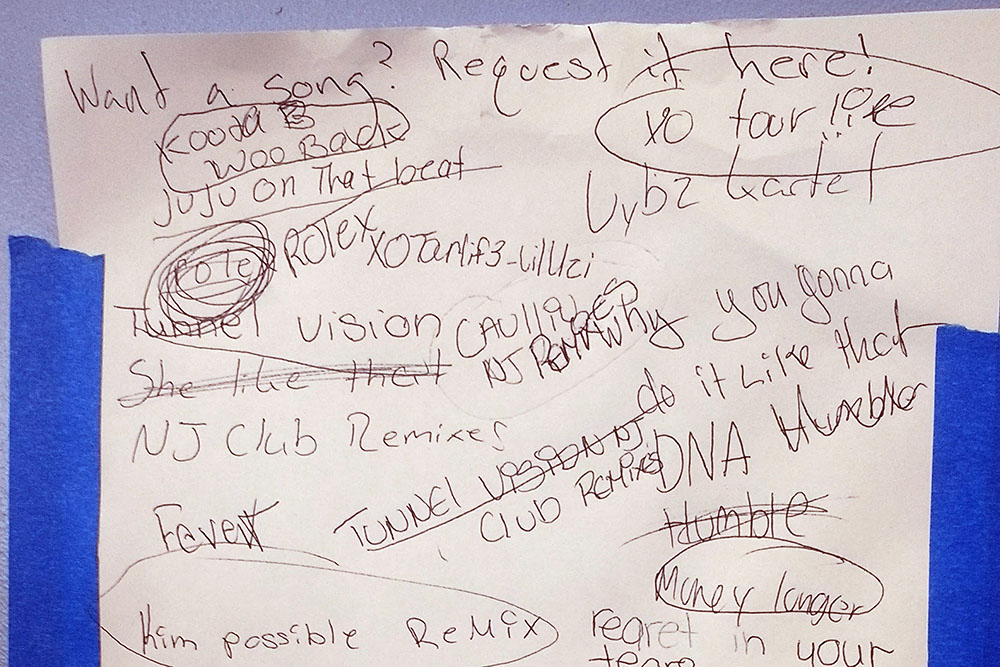 Want a song? Request it here!
Kooda B
Woo Back
XO tour liife
JuJu On That beat
Vybz Kartel
Rolex
ROLEX
XOTourlif3-Lil Uzi
Tunnel vision
She like that
NJ REMIX
Why you gonna
do it Like that
NJ Club Remixes
TUNNEL VISION NJ
Club REMIXES
DNA
Humble
Humble
Money longer
Kim possible ReMix
regret in your
tears